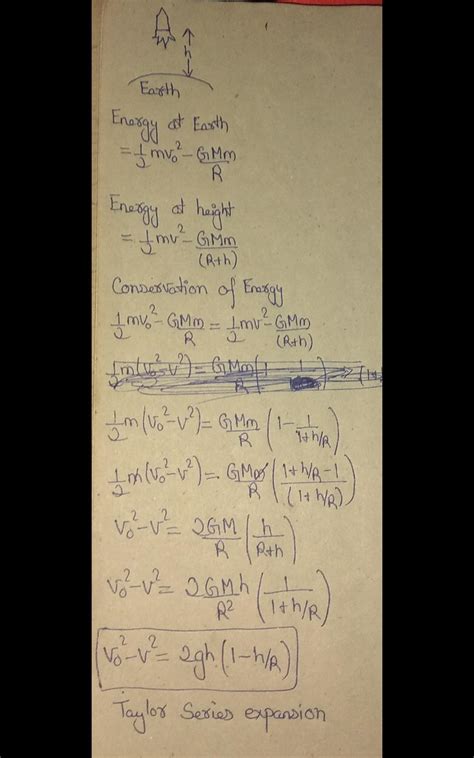 h
Earth
Energy at Earth
= 1/2 mv₀² - GMm/R
Energy at height
= 1/2 mv² - GMm/(R+h)
Conservation of Energy
1/2 mv₀² - GMm/R = 1/2 mv² - GMm/(R+h)
1/2 m(v₀²-v²) = GMm/R (1 - 1
1/2 m(v₀²-v²) = GMm/R (1 - 1/(1+h/R))
1/2 m(v₀²-v²) = GMm/R ((1+h/R-1)/(1+h/R))
v₀²-v² = 2GM/R (h/(R+h))
v₀²-v² = 2GMh/R² (1/(1+h/R))
v₀²-v² = 2gh(1-h/R)
Taylor Series expansion